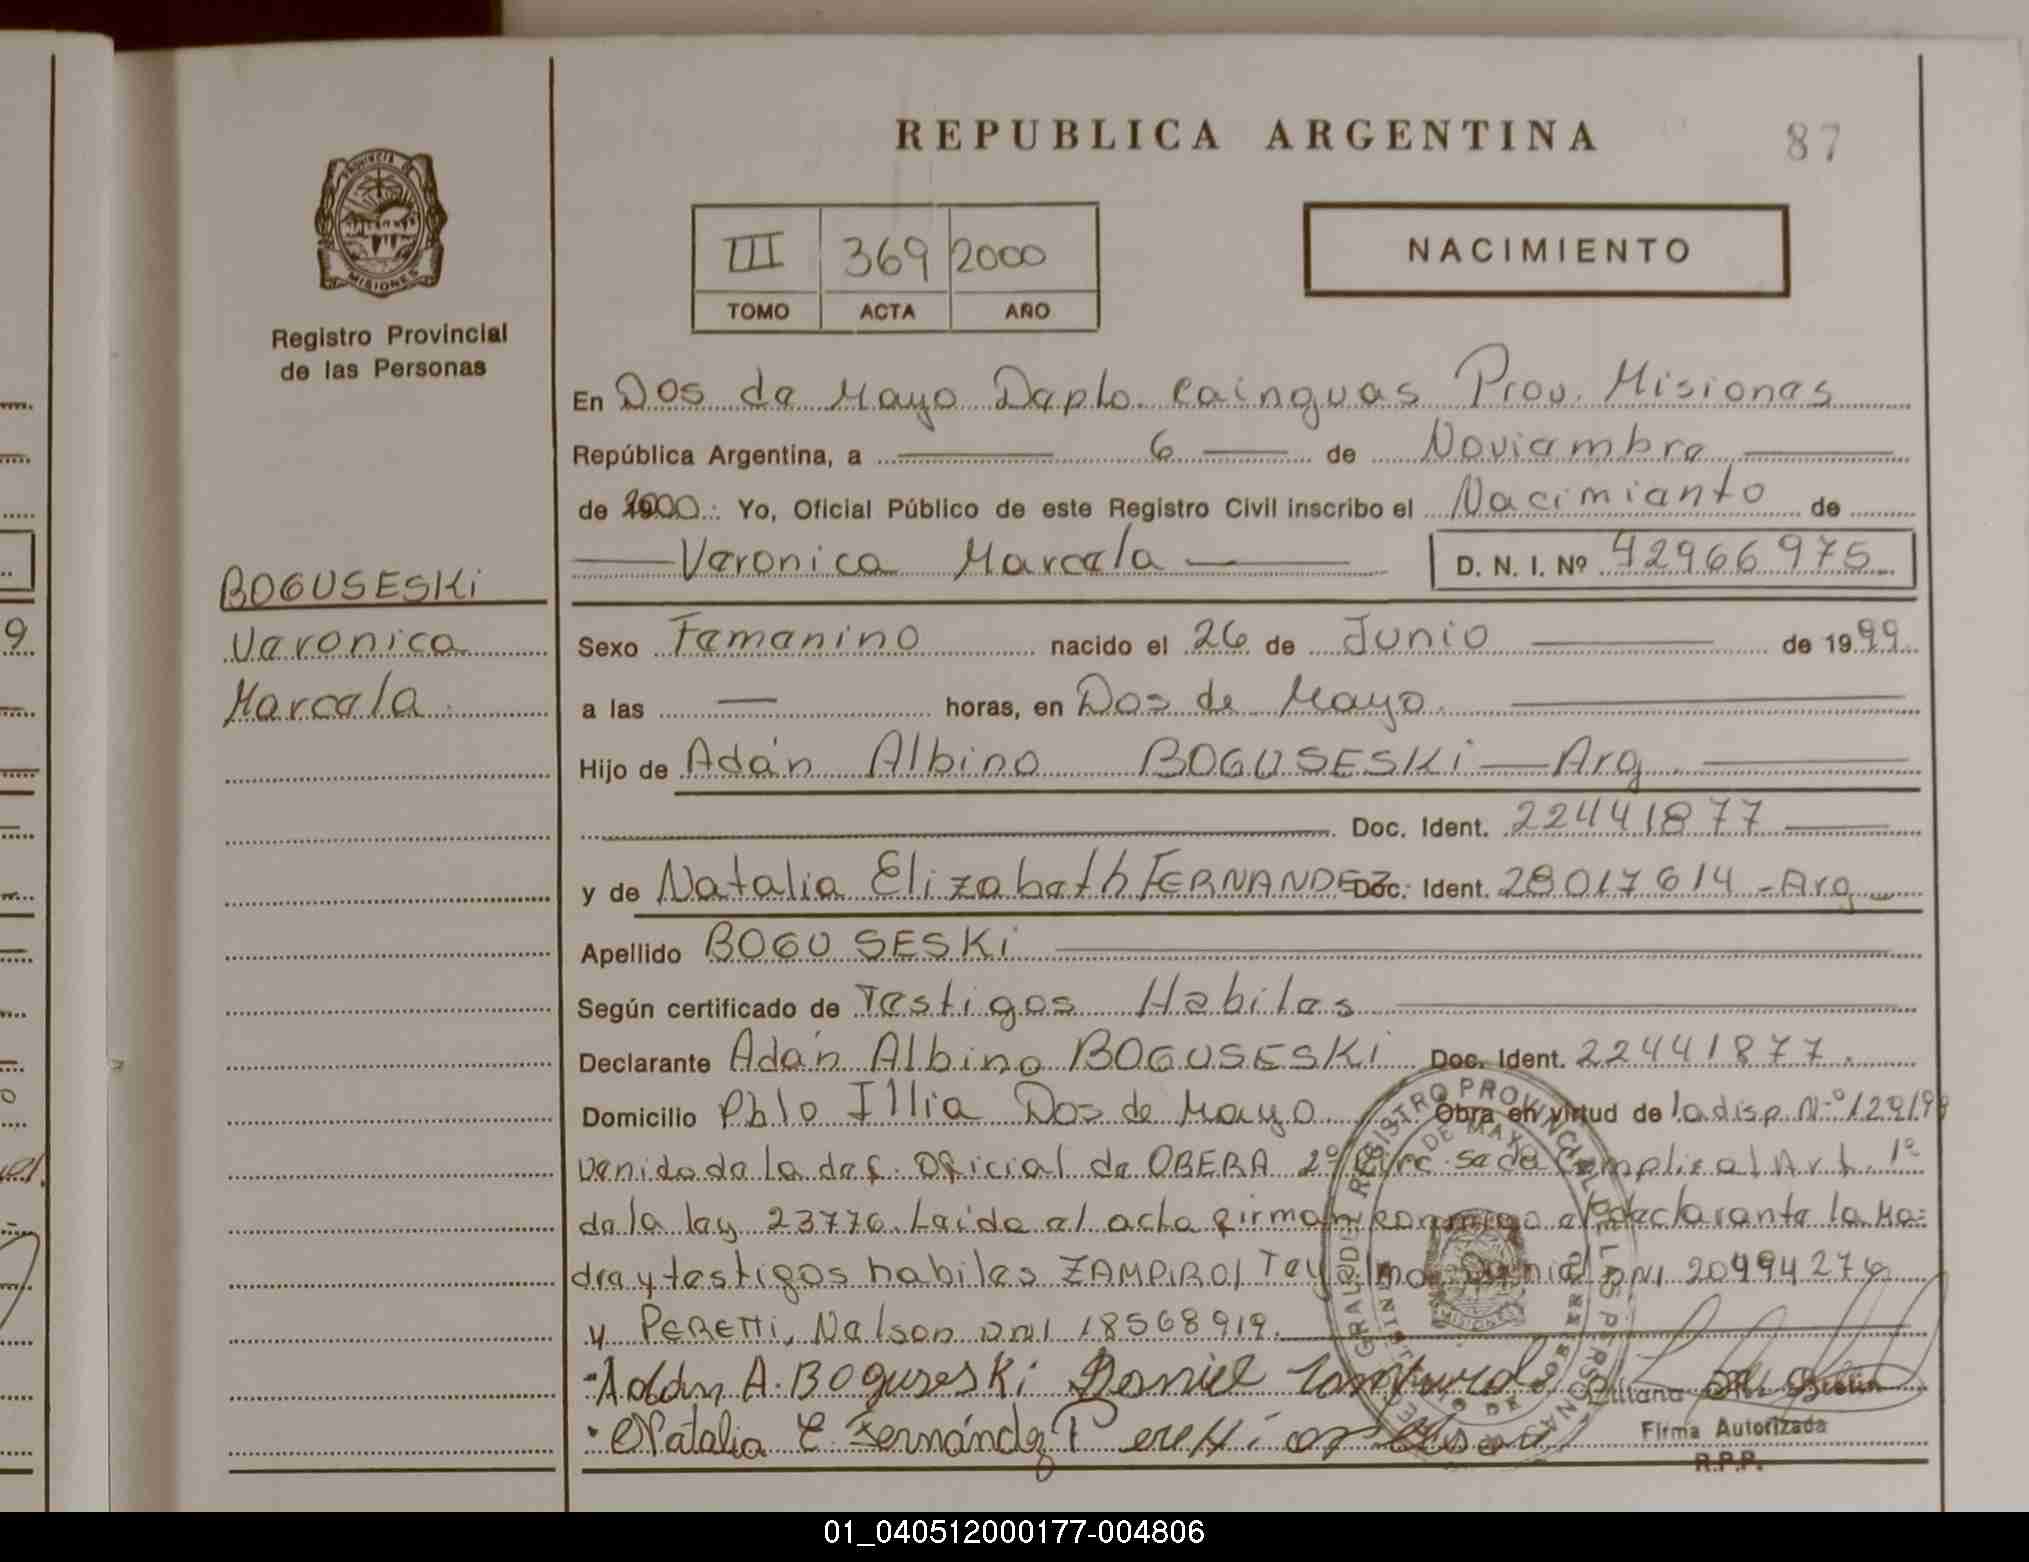 REPUBLICA ARGENTINA
87
PROVINCIA DE
MISIONES
Registro Provincial
de las Personas
III 369 2000
TOMO ACTA AÑO
NACIMIENTO
En Dos de Mayo Dapto. Cainguas Prov. Misiones
República Argentina, a 6 de Noviembre
de 2000 : Yo, Oficial Público de este Registro Civil inscribo el Nacimiento de
Veronica Marcela D. N. I. Nº 42966975
BOGUSESKi
Veronica
Marcela
Sexo Femenino nacido el 26 de Junio de 1999
a las — horas, en Dos de Mayo
Hijo de Adán Albino BOGUSESKi — Arg
Doc. Ident. 22441877
y de Natalia Elizabeth FERNANDEZ Doc. Ident. 28017614 - Arg
Apellido BOGUSESKi
Según certificado de Testigos Habiles
Declarante Adán Albino BOGUSESKi Doc. Ident. 22441877.
Domicilio Pblo Illia Dos de Mayo Obra en virtud de la disp. Nº 129/99
venida de la def. Oficial de OBERA 2º Circ. se da Cumpli. al Art. 1º
de la ley 23776. Leida el acta firman conmigo el declarante la Ma-
dre y testigos habiles ZAMPIROI Daniel DNI 20994276
y PERETTI, Nelson DNI 18568919.
Adan A. Boguseski Daniel
Natalia E. Fernández Peretti
Firma Autorizada
R.P.P.
REGISTRO PROVINCIAL DE LAS PERSONAS
DOS DE MAYO
MISIONES
01_040512000177-004806